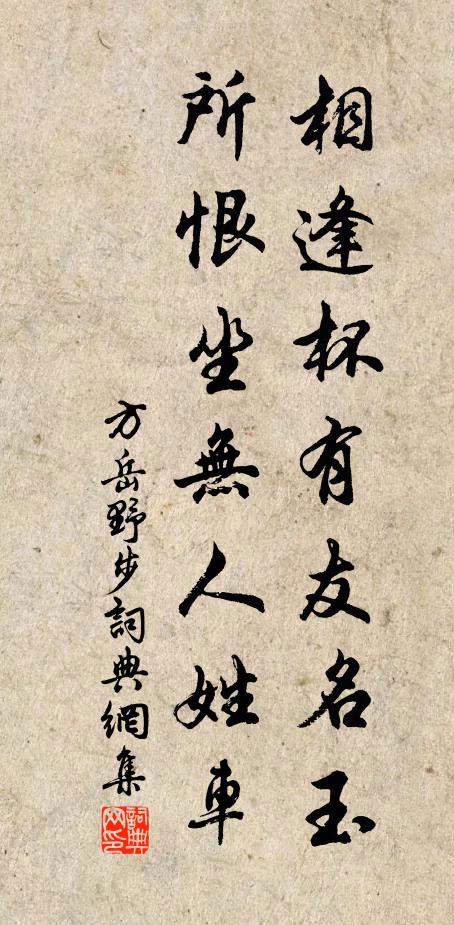 相逢杯有友名玉
所恨坐無人姓車
方岳野步詞典網集
詞典網印